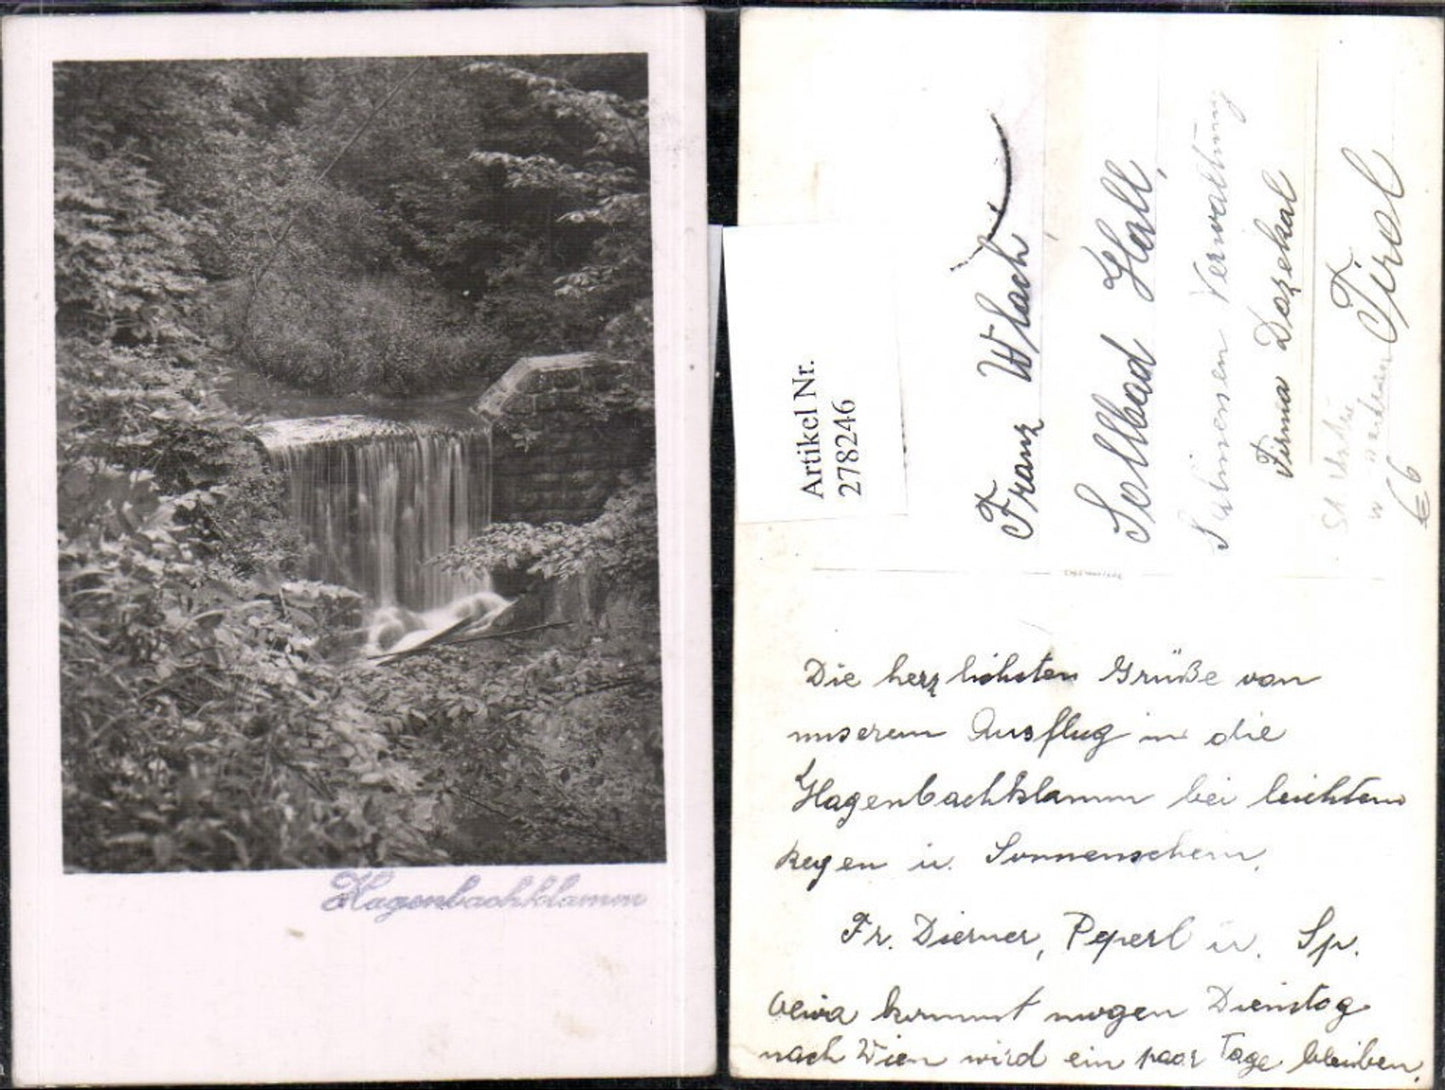 Hagenbachklamm
Artikel Nr.
278246
Franz Wlach
Sollbad Hall,
Salinessen Verwaltung
Firma Dozekal
Tirol
St
w
€6
Die herzlichsten Grüße von
unserem Ausflug in die
Hagenbachklamm bei leichtem
Regen u. Sonnenschein.
Fr. Dierner, Peperl u. Sp.
kommt morgen Dienstag
nach Wien wird ein paar Tage bleiben.